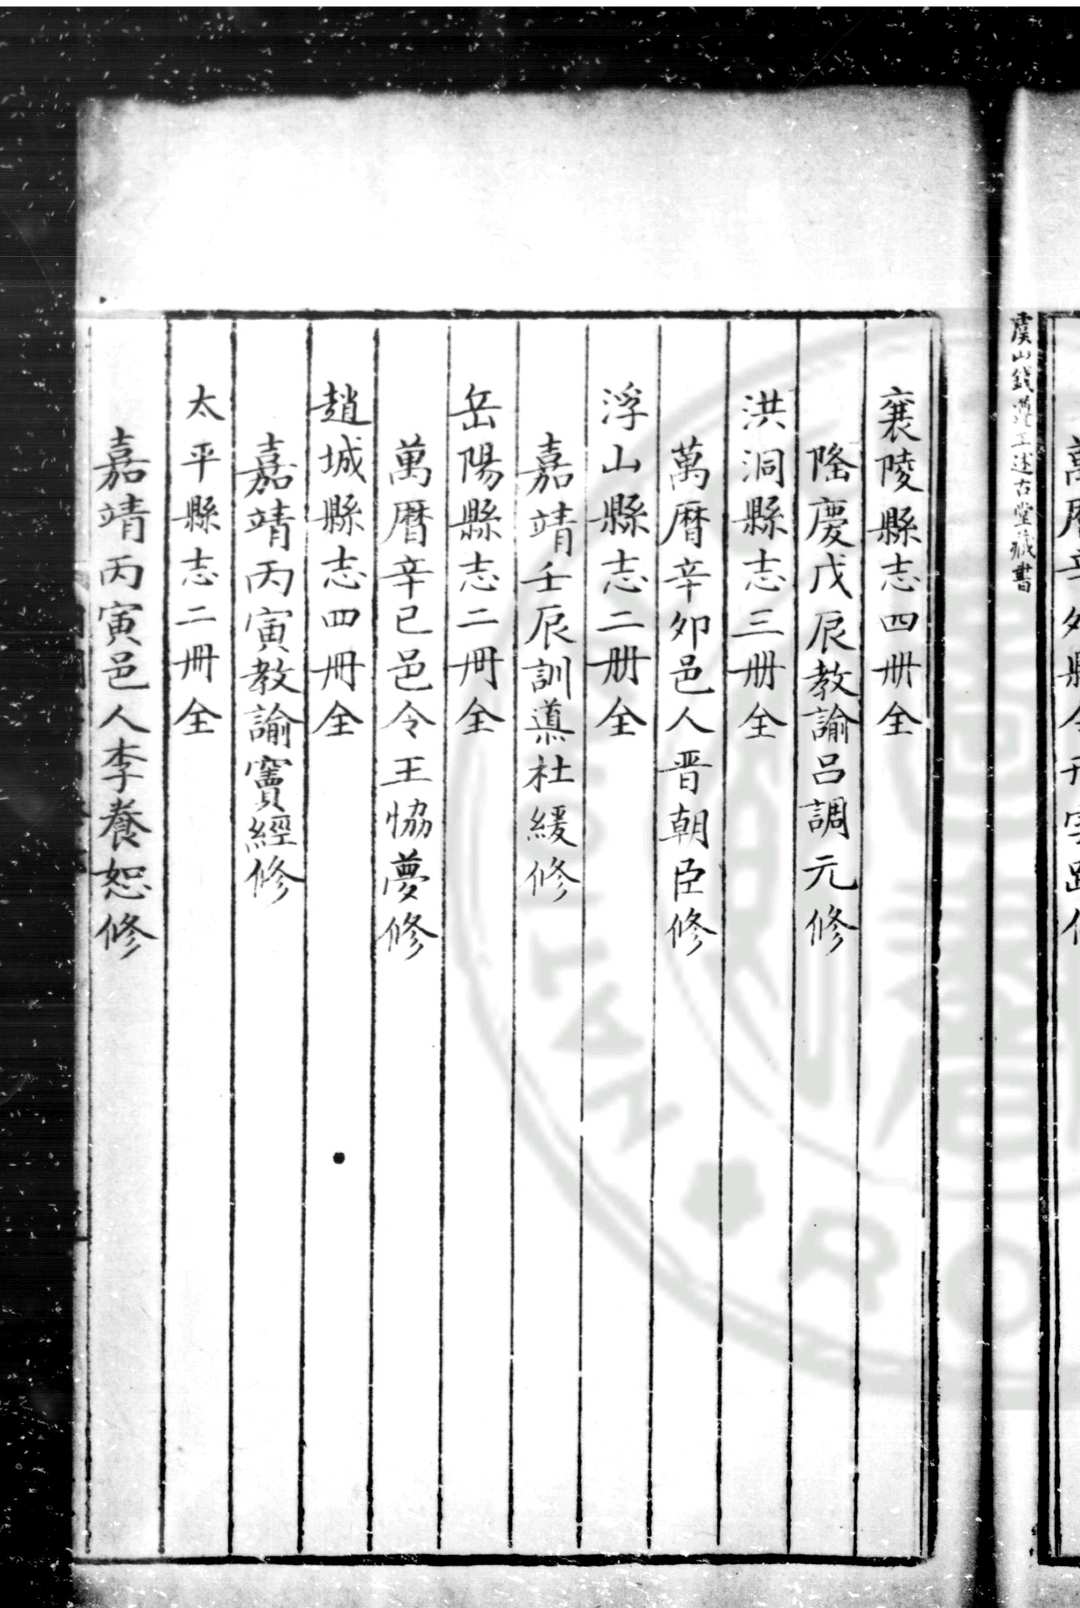 萬曆辛夘縣令
虞山錢遵王述古堂藏書
襄陵縣志四册全
隆慶戊辰教諭呂調元修
洪洞縣志三册全
萬曆辛夘邑人晋朝臣修
浮山縣志二册全
嘉靖壬辰訓導杜緩修
岳陽縣志二冊全
萬曆辛巳邑令王恊夢修
趙城縣志四冊全
嘉靖丙寅教諭竇經修
太平縣志二冊全
嘉靖丙寅邑人李養恕修